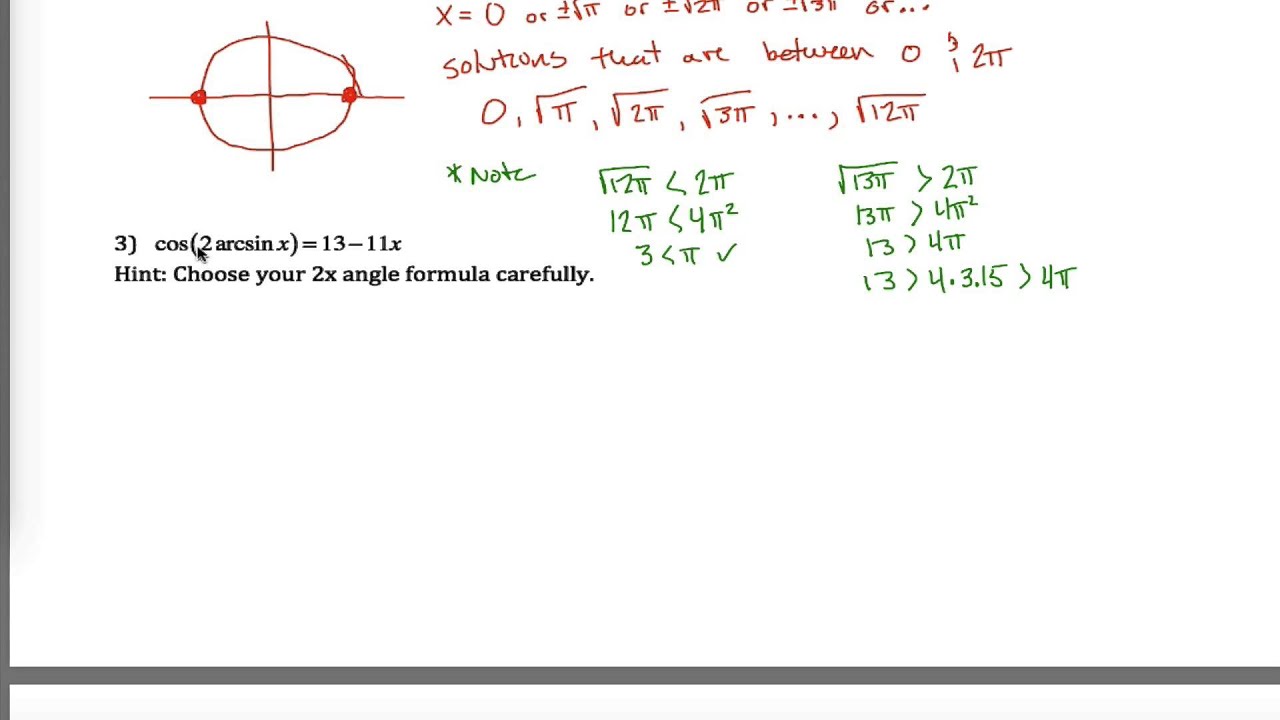 x = 0 or ±√π or ±√2π or ±√3π or...
solutions that are between 0 & 2π
0, √π, √2π, √3π, ..., √12π
*Note √12π < 2π √13π > 2π
12π < 4π² 13π > 4π²
3 < π ✓ 13 > 4π
3) cos(2 arcsin x) = 13 − 11x
Hint: Choose your 2x angle formula carefully.
13 > 4·3.15 > 4π